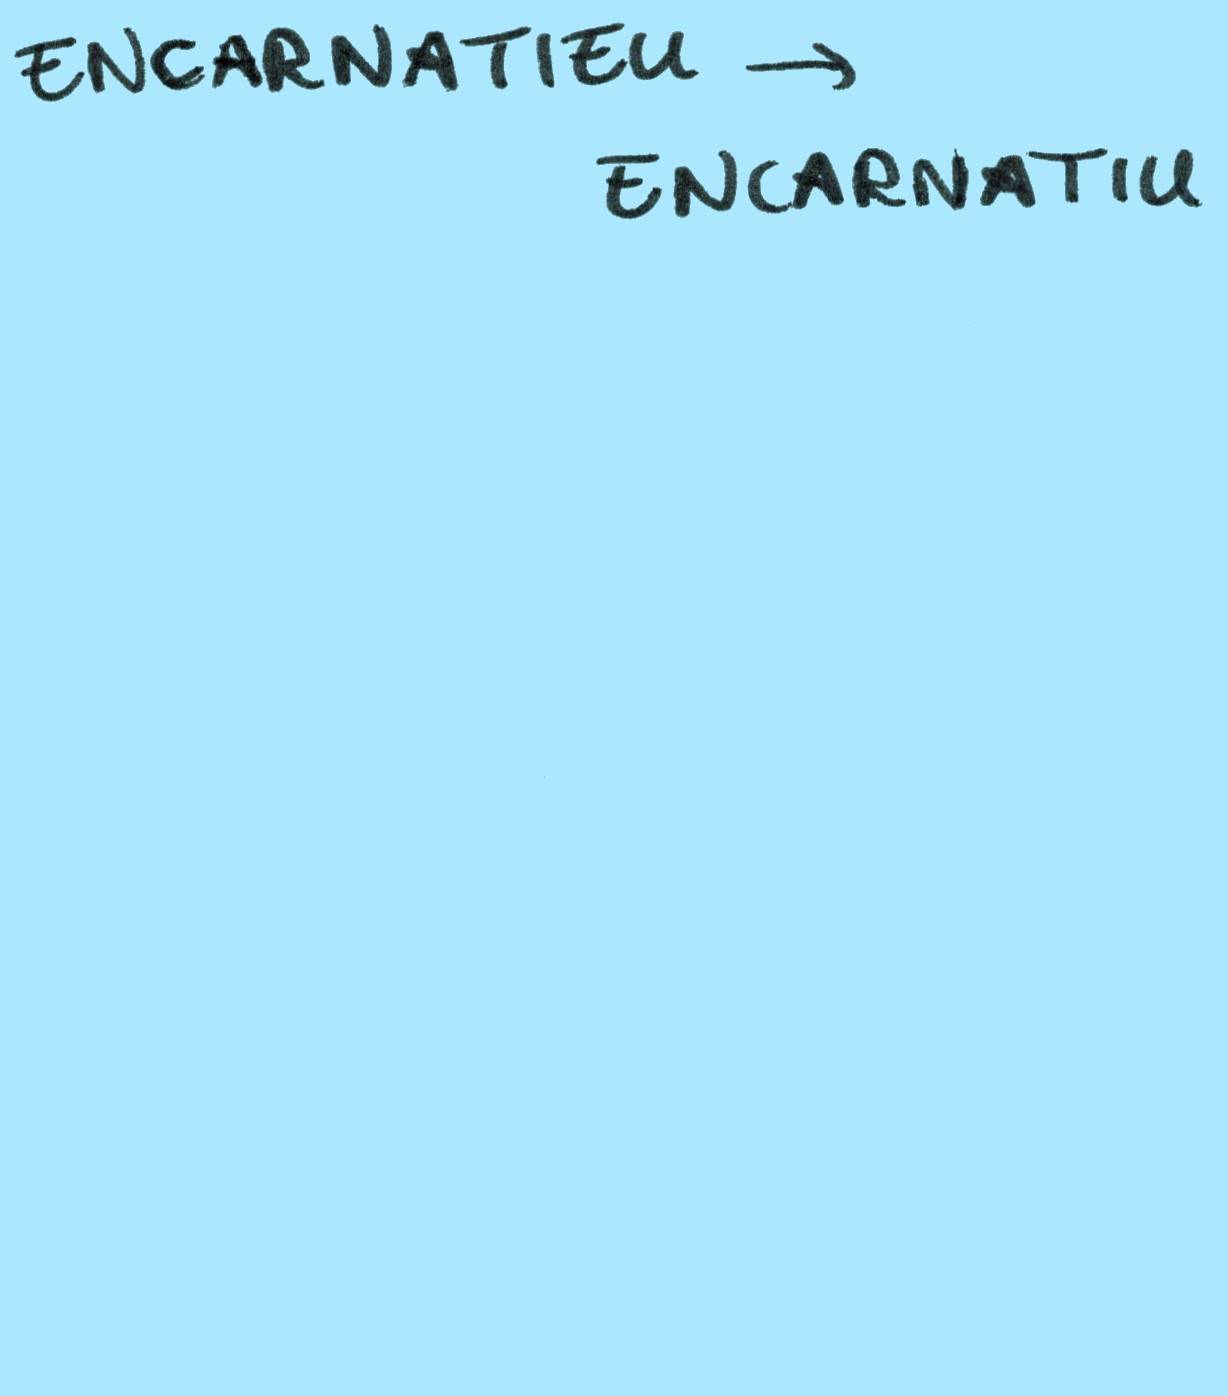 ENCARNATIEU →
ENCARNATIU